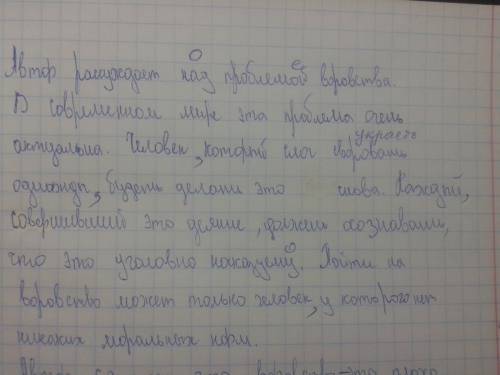 Автор рассуждает над проблемой воровства.
В современном мире эта проблема очень
актуальна. Человек, который смог украсть
однажды, будет делать это снова. Каждый,
совершивший это деяние, должен осознавать,
что это уголовно наказуемо. Пойти на
воровство может только человек, у которого нет
никаких моральных норм.